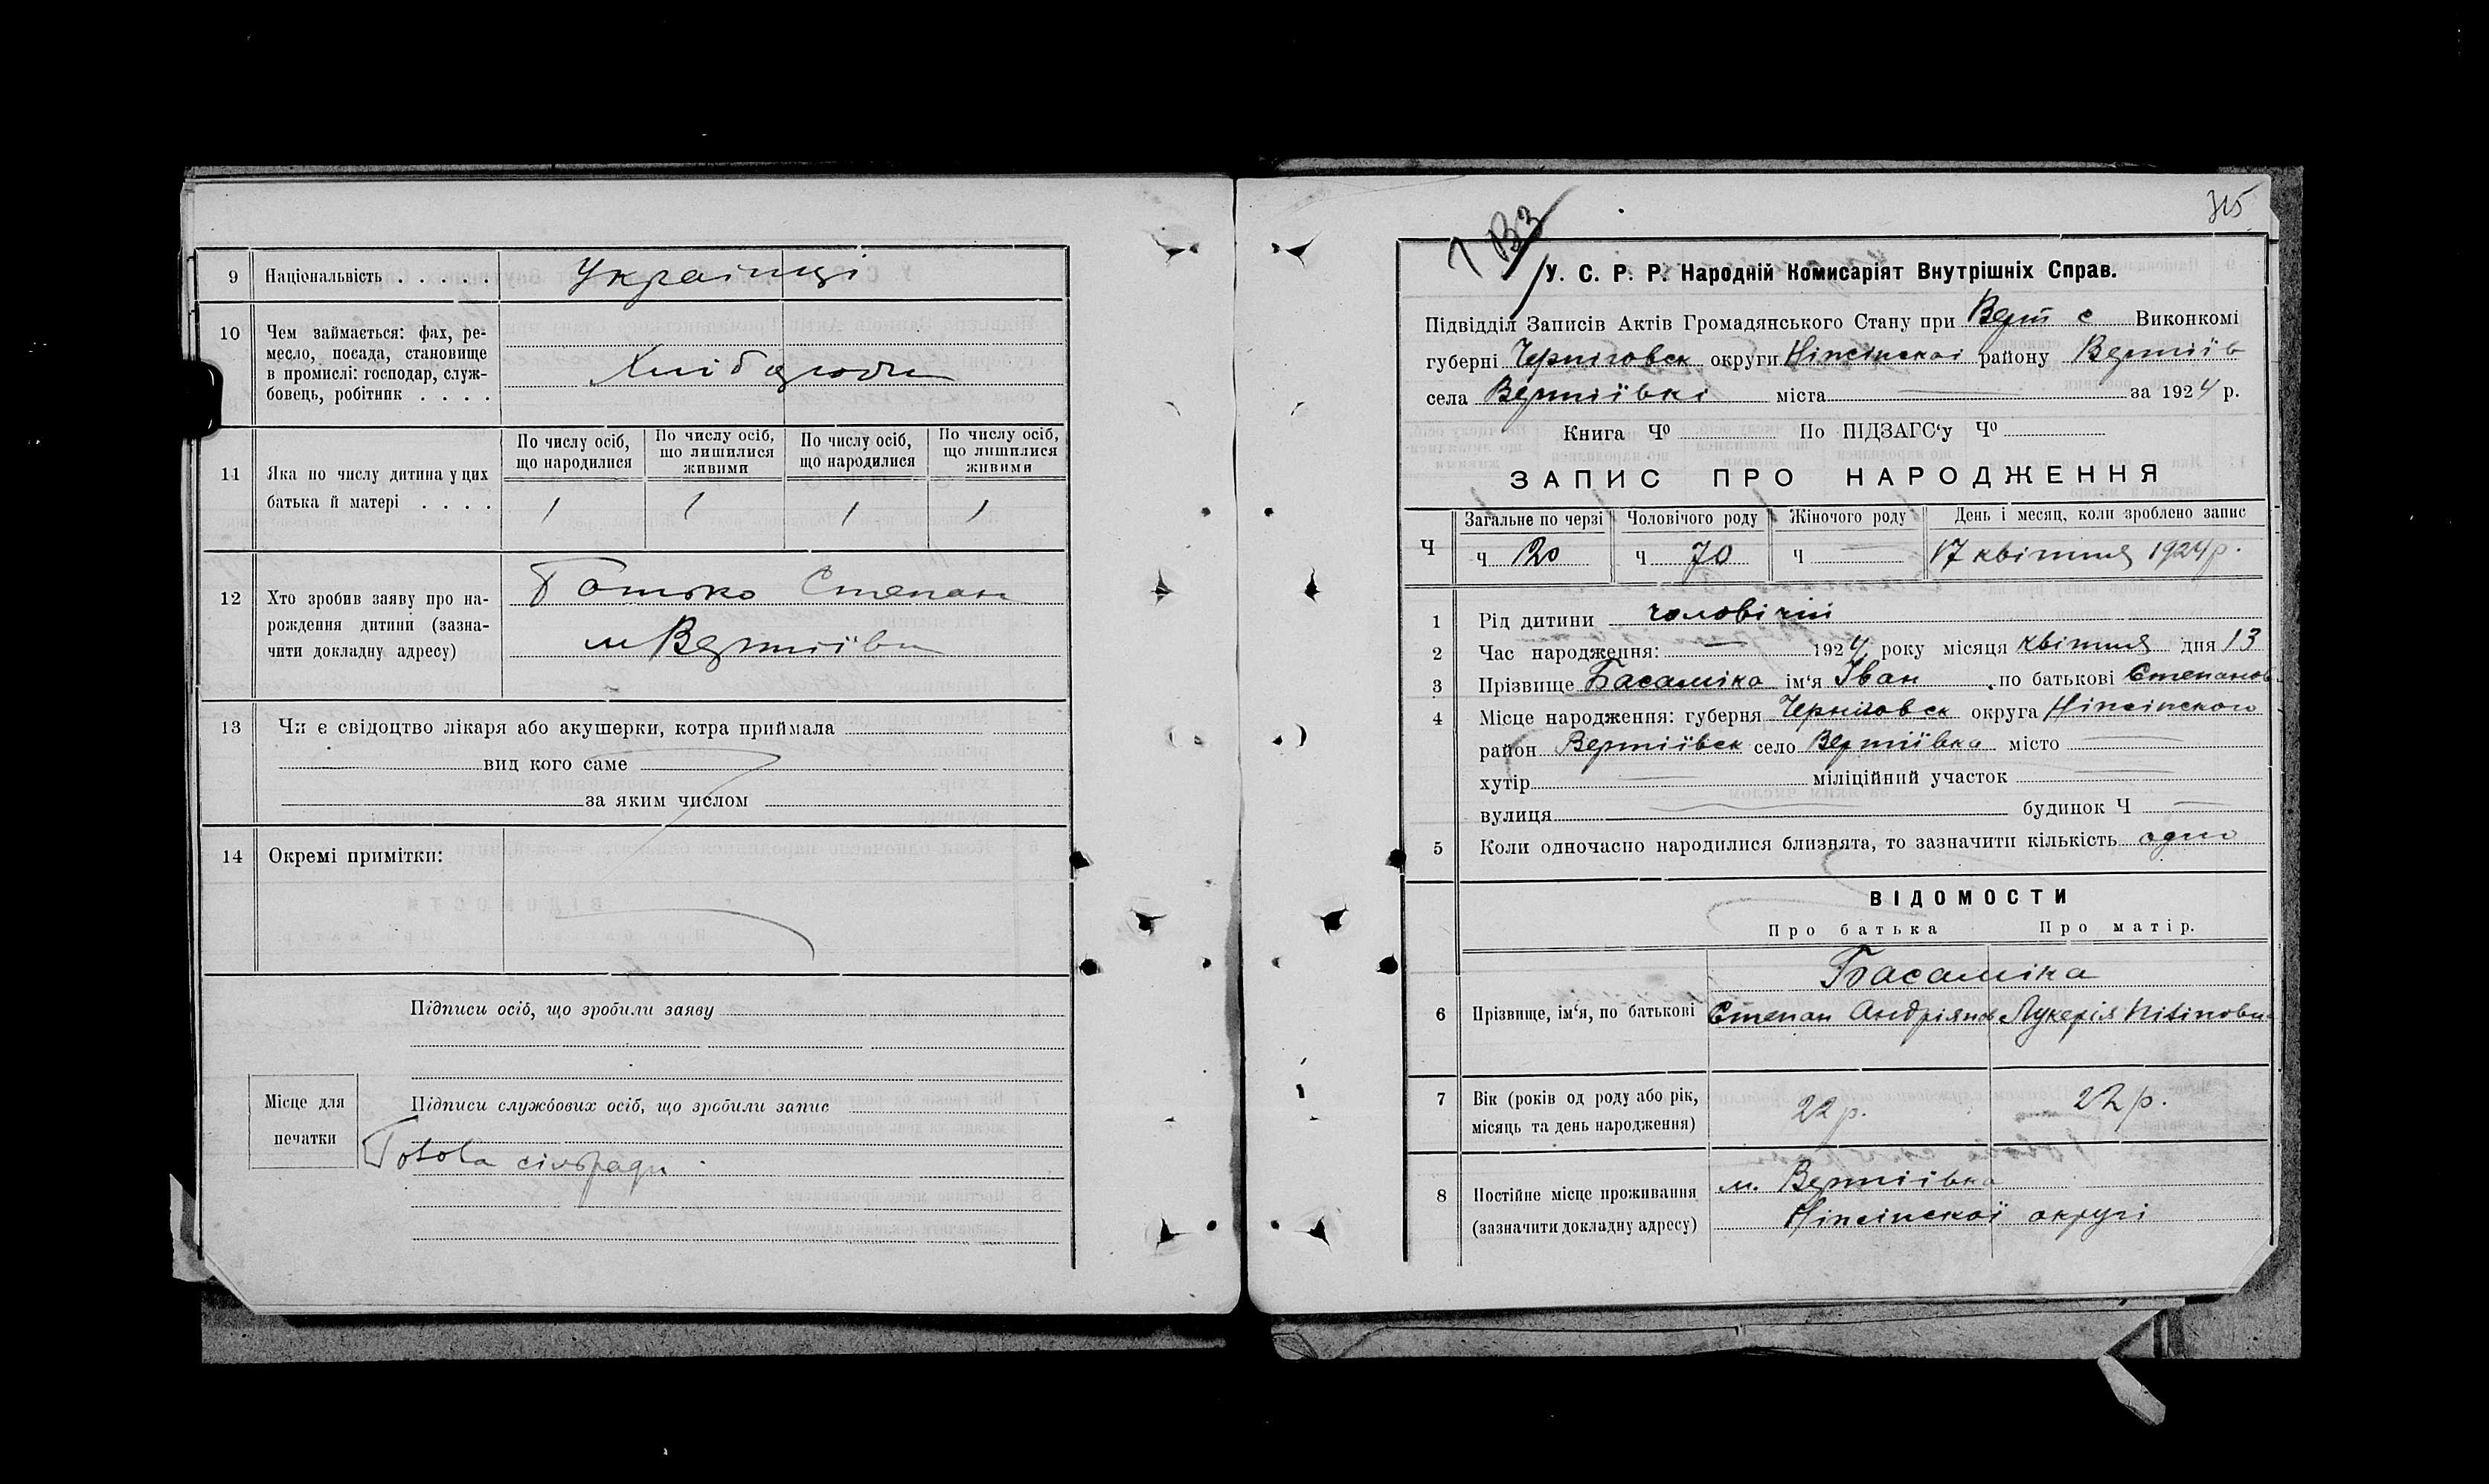 9 Національність . . . . . Українці
10 Чем займається: фах, ре-
месло, посада, становище
в промислі: господар, служ-
бовець, робітник . . . . Хлібороби
11 Яка по числу дитина у цих
батька й матері . . . .
По числу осіб, що народилися
По числу осіб, що лишилися живими
По числу осіб, що народилися
По числу осіб, що лишилися живими
1 1 1 1
12 Хто зробив заяву про на-
рождення дитини (зазна-
чити докладну адресу)
Батько Степан
м Вертіївка
13 Чи є свідоцтво лікаря або акушерки, котра приймала
вид кого саме
за яким числом
14 Окремі примітки:
Підписи осіб, що зробили заяву
Місце для
печатки
Підписи службових осіб, що зробили запис
Голова сільради
315
У. С. Р. Р. Народній Комисаріят Внутрішніх Справ.
Підвідділ Записів Актів Громадянського Стану при Верт с Виконкомі
губерні Черніговск округи Ніжінскоі району Вертіїв
села Вертіївкі міста за 1924 р.
Книга Чо По ПІДЗАГС‘у Чо
ЗАПИС ПРО НАРОДЖЕННЯ
Загальне по черзі Чоловічого роду Жіночого роду День і месяц, коли зроблено запис
Ч ч ч 70 ч — 17 квітня 1924р.
1 Рід дитини чоловічий
2 Час народження: — 1924 року місяця квітня дня 13
3 Прізвище ім‘я Іван по батькові Степанов
4 Місце народження: губерня Черніговск округа Ніжінского
район Вертіївск село Вертіївка місто —
хутір — міліційний участок —
вулиця — будинок Ч —
5 Коли одночасно народилися близнята, то зазначити кількість одно
ВІДОМОСТИ
Про батька Про матір.
6 Прізвище, ім‘я, по батькові
Степан Андріянов Лукерія
7 Вік (років од роду або рік,
місяць та день народження) 22 р. 22 р.
8 Постійне місце проживання
(зазначити докладну адресу)
м. Вертіївка
Ніжінскої округі